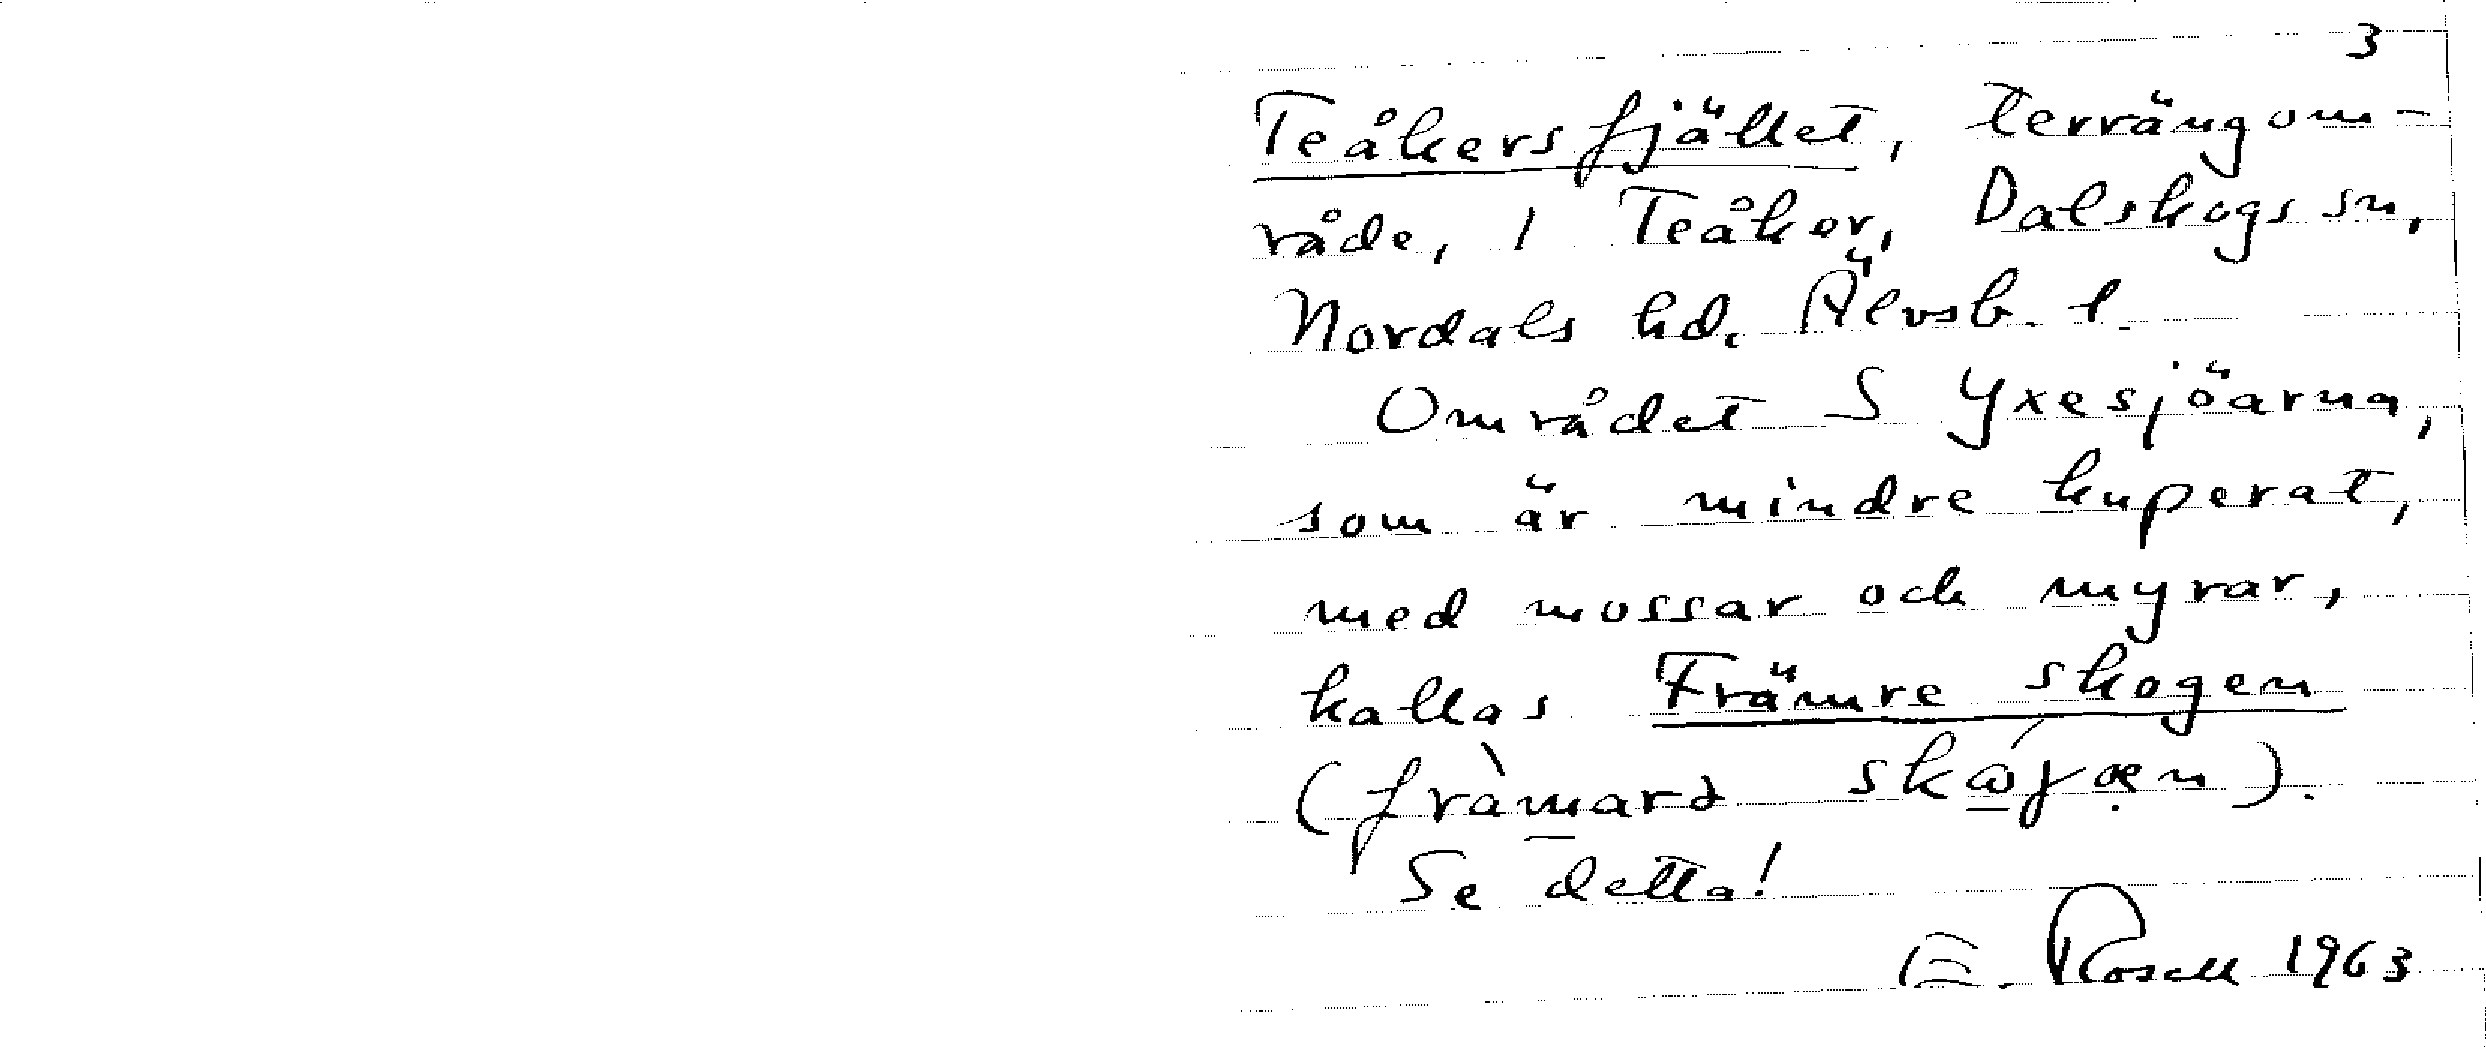 3
Teåkersfjället, terrängom-
råde, 1 Teåker, Dalskogs sn,
Nordals hd. Älvsb. l.
Området S Yxesjöarna,
som är mindre kuperat,
med mossar och myrar,
kallas Främre skogen
(
).
Se detta!
E. Rosell 1963